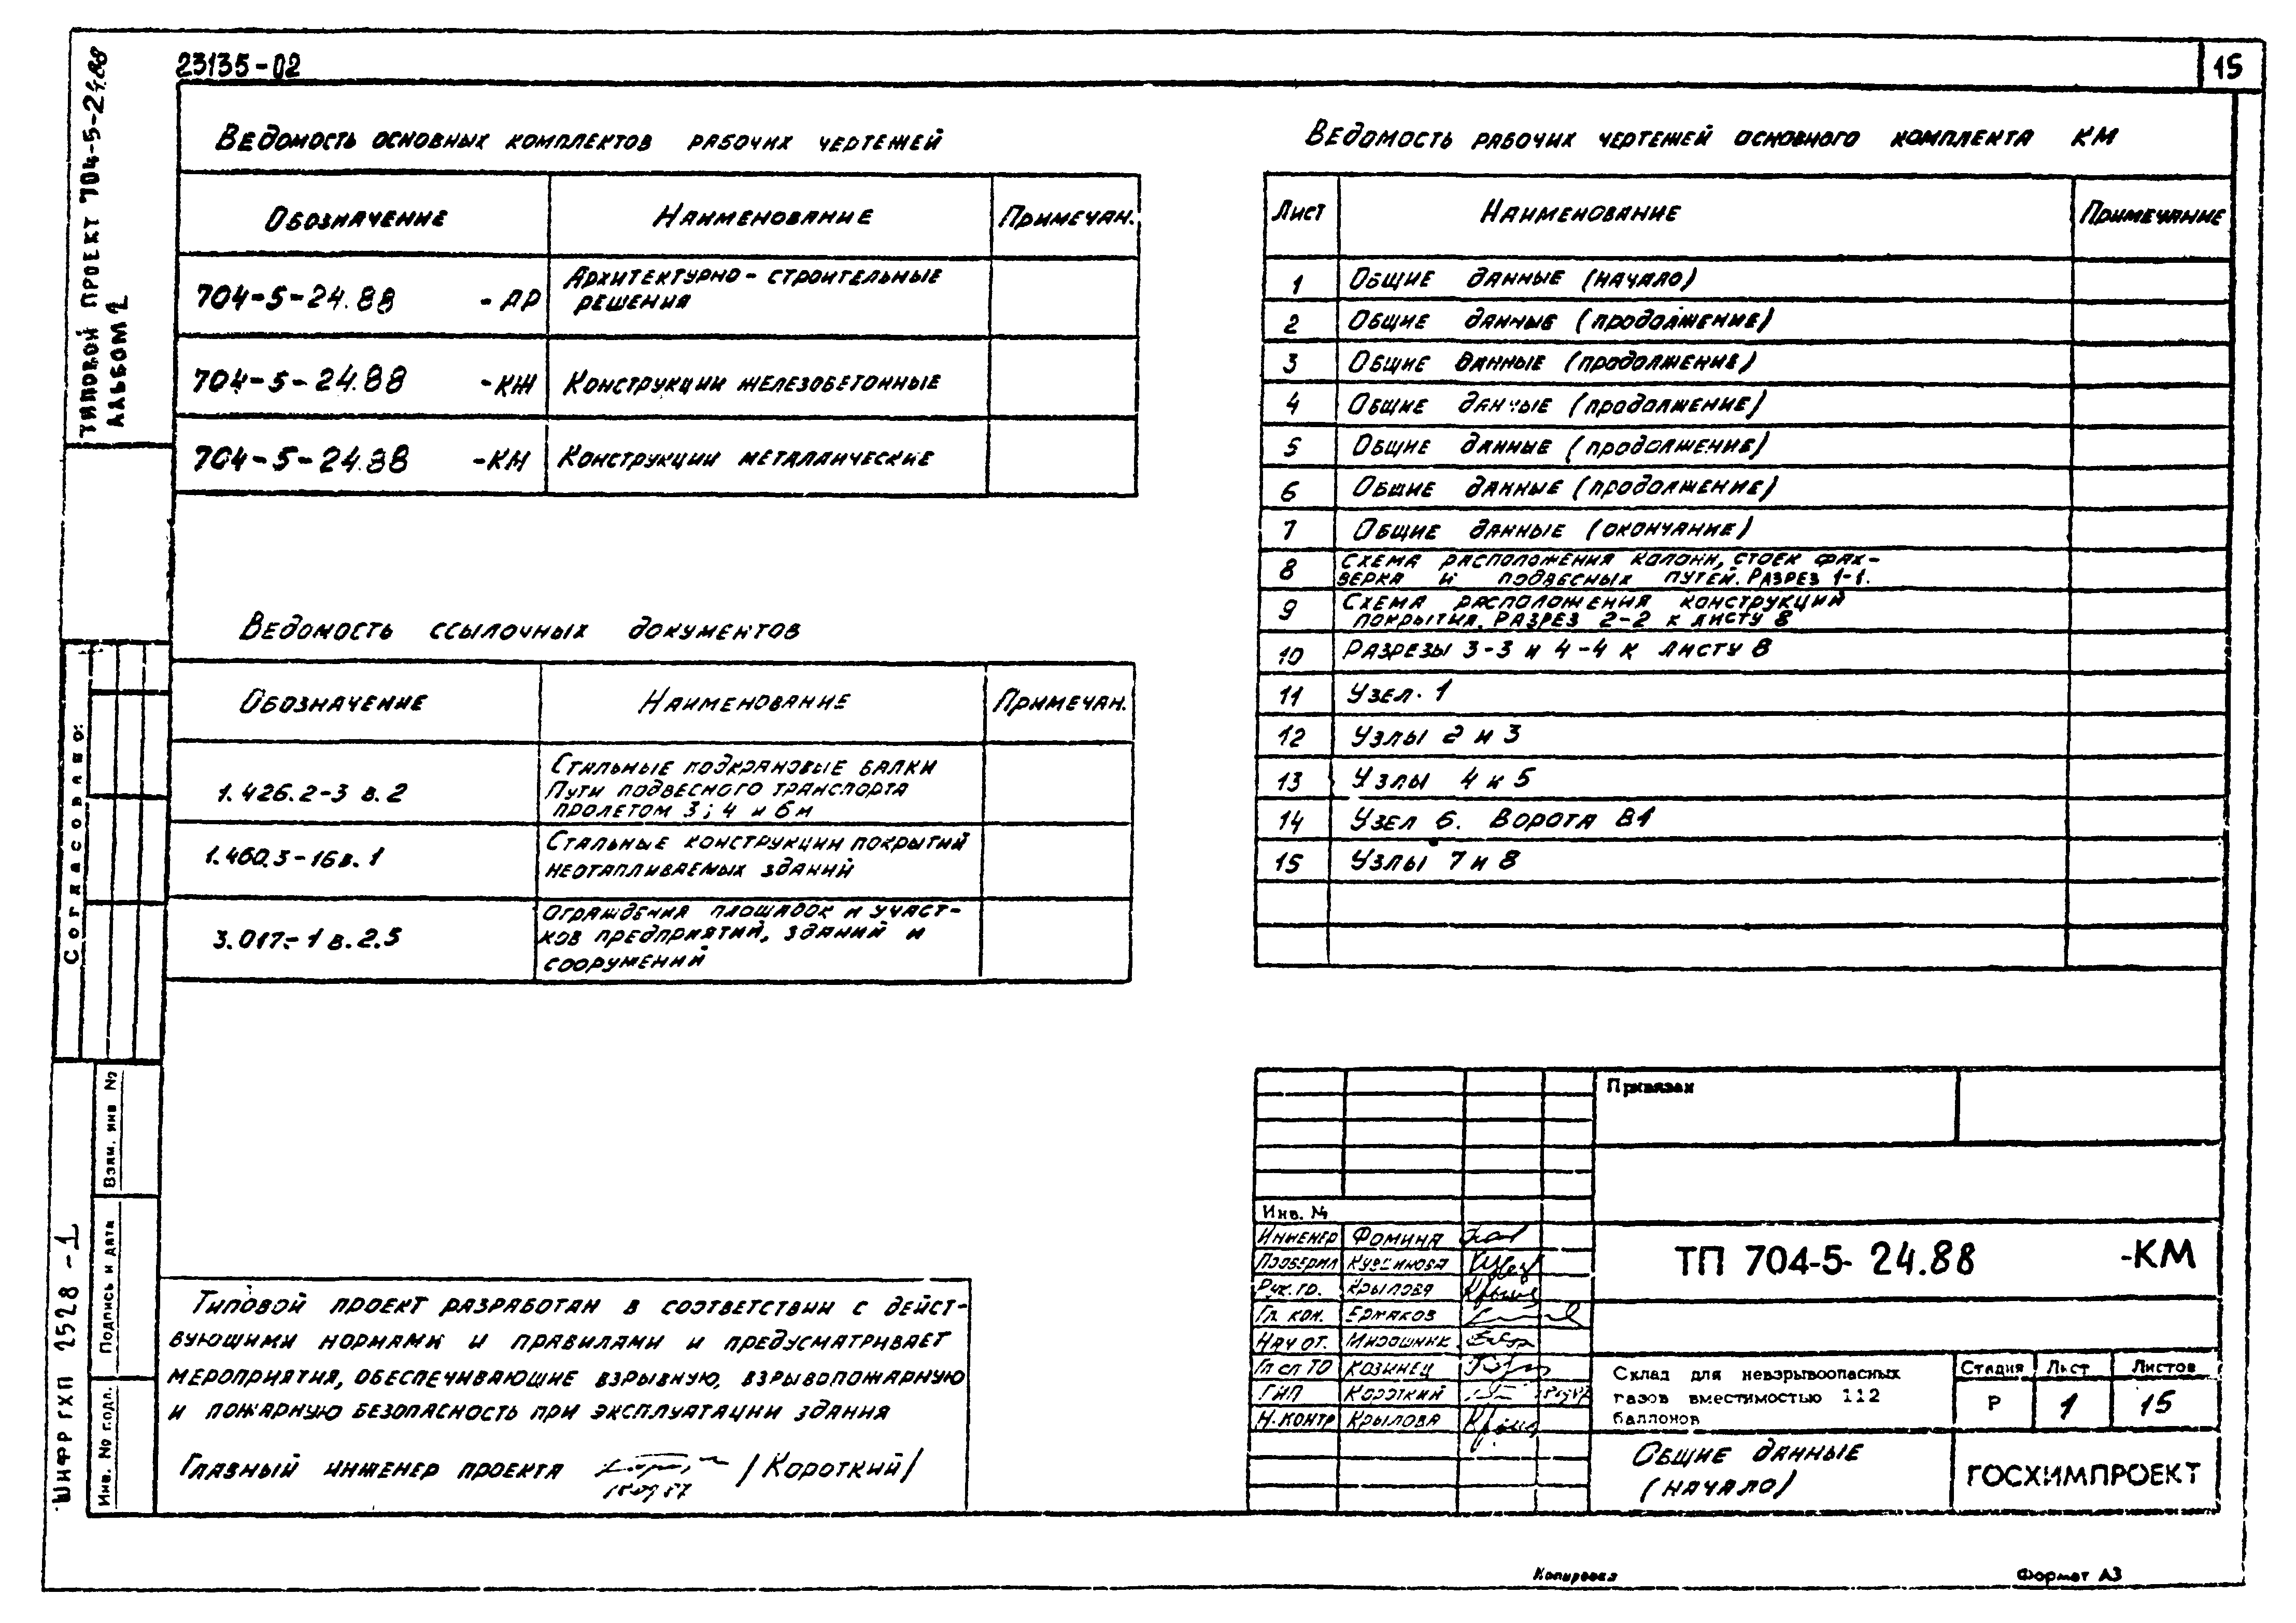 23135-02
15
ТИПОВОЙ ПРОЕКТ 704-5-24.88
АЛЬБОМ 2
Ведомость основных комплектов рабочих чертежей
Обозначение Наименование Примечан.
704-5-24.88 -АР Архитектурно-строительные
решения
704-5-24.88 -КЖ Конструкции железобетонные
704-5-24.88 -КМ Конструкции металлические
Ведомость ссылочных документов
Обозначение Наименование Примечан.
1.426.2-3 в.2 Стальные подкрановые балки
Пути подвесного транспорта
пролетом 3; 4 и 6м
1.460.3-16в.1 Стальные конструкции покрытий
неотапливаемых зданий
3.017-1 в.2.5 Ограждения площадок и участ-
ков предприятий, зданий и
сооружений
Ведомость рабочих чертежей основного комплекта КМ
Лист Наименование Примечание
1 Общие данные (начало)
2 Общие данные (продолжение)
3 Общие данные (продолжение)
4 Общие данные (продолжение)
5 Общие данные (продолжение)
6 Общие данные (продолжение)
7 Общие данные (окончание)
8 Схема расположения колонн, стоек фах-
верка и подвесных путей. Разрез 1-1.
9 Схема расположения конструкций
покрытия. Разрез 2-2 к листу 8
10 Разрезы 3-3 и 4-4 к листу 8
11 Узел 1
12 Узлы 2 и 3
13 Узлы 4 и 5
14 Узел 6. Ворота В1
15 Узлы 7 и 8
Согласовано:
Взам. инв №
Подпись и дата
Инв. № подл.
ШИФР ГХП 2528 -1
Типовой проект разработан в соответствии с дейст-
вующими нормами и правилами и предусматривает
мероприятия, обеспечивающие взрывную, взрывопожарную
и пожарную безопасность при эксплуатации здания
Главный инженер проекта /Короткий/
Привязан
Инв. №
Инженер Фомина
Проверил
Рук. гр. Крылова
Гл. кон. Ермаков
Нач от. Мирошник
Гл сп ТО Козинец
ГИП Короткий
Н. контр Крылова
ТП 704-5-24.88 -КМ
Склад для невзрывоопасных
газов вместимостью 112
баллонов
Стадия Лист Листов
Р 1 15
Общие данные
(начало)
ГОСХИМПРОЕКТ
Копировал
Формат А3